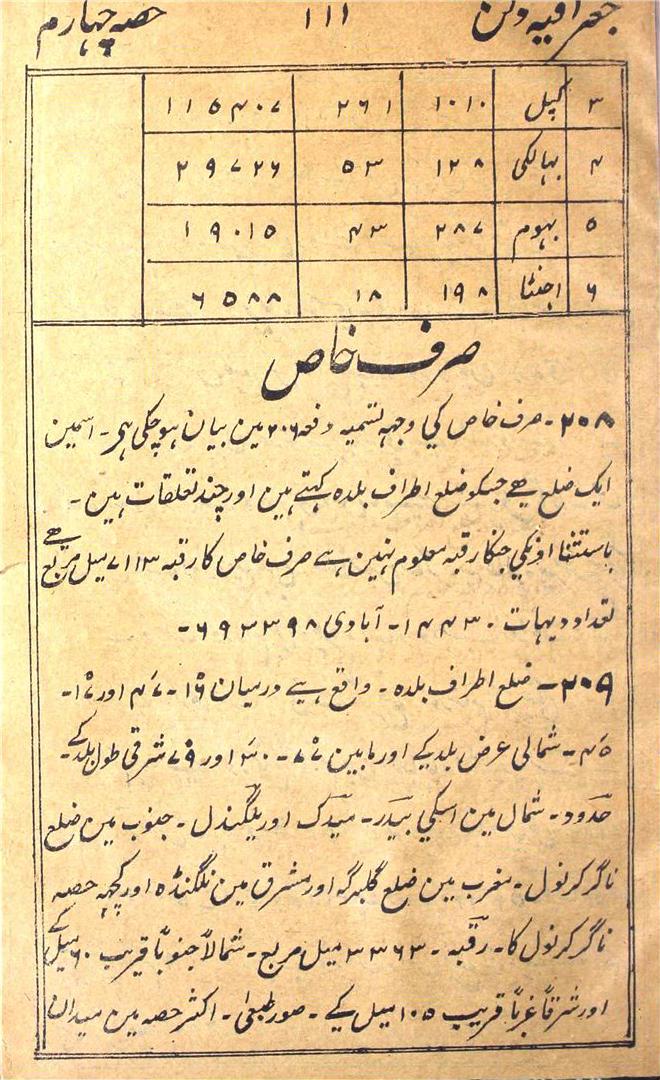 جغرافیہ دکن ۱۱۱ حصہ چہارم
۳ کپل ۱۰۱۰ ۲۶۱ ۱۱۵۴۰۷
۴ بہالکی ۱۲۸ ۵۳ ۲۹۷۲۶
۵ بہوم ۲۸۷ ۴۳ ۱۹۰۱۵
۶ اجنٹا ۱۹۸ ۱۸ ۶۵۸۸
صرف خاص
۲۰۸ ۔ صرف خاص کی وجہہ تسمیہ دفعہ ۲۰۶ مین بیان ہو چکی ہی ۔ اسمین
ایک ضلع ہے جسکو ضلع اطراف بلدہ کہتے ہین اور چند تعلقات ہین ۔
باستثنا اونکی جنکا رقبہ معلوم نہین ہے صرف خاص کا رقبہ ۷۱۱۳ میل مربع ہے
تعداد دیہات ۔ ۱۴۴۳ ۔ آبادی ۶۹۲۳۹۸ ۔
۲۰۹ ۔ ضلع اطراف بلدہ ۔ واقع ہے درمیان ۱۶ ۔ ۴۷ اور ۱۷ ۔
۴۵ ۔ شمالی عرض بلد کے اور مابین ۷۷ ۔ ۳۰ اور ۷۹ شرقی طول بلد کے ۔
حدود ۔ شمال مین اسکی بیدر ۔ میدک اور یلگندل ۔ جنوب مین ضلع
ناگر کرنول ۔ مغرب مین ضلع گلبرگہ اور مشرق مین نلگنڈہ اور کچہہ حصہ
ناگر کرنول کا ۔ رقبہ ۔ ۳۳۶۳ میل مربع ۔ شمالاً جنوباً قریب ۶۰ میل کے
اور شرقاً غرباً قریب ۱۰۵ میل کے ۔ صور طبعی ۔ اکثر حصہ مین میدان